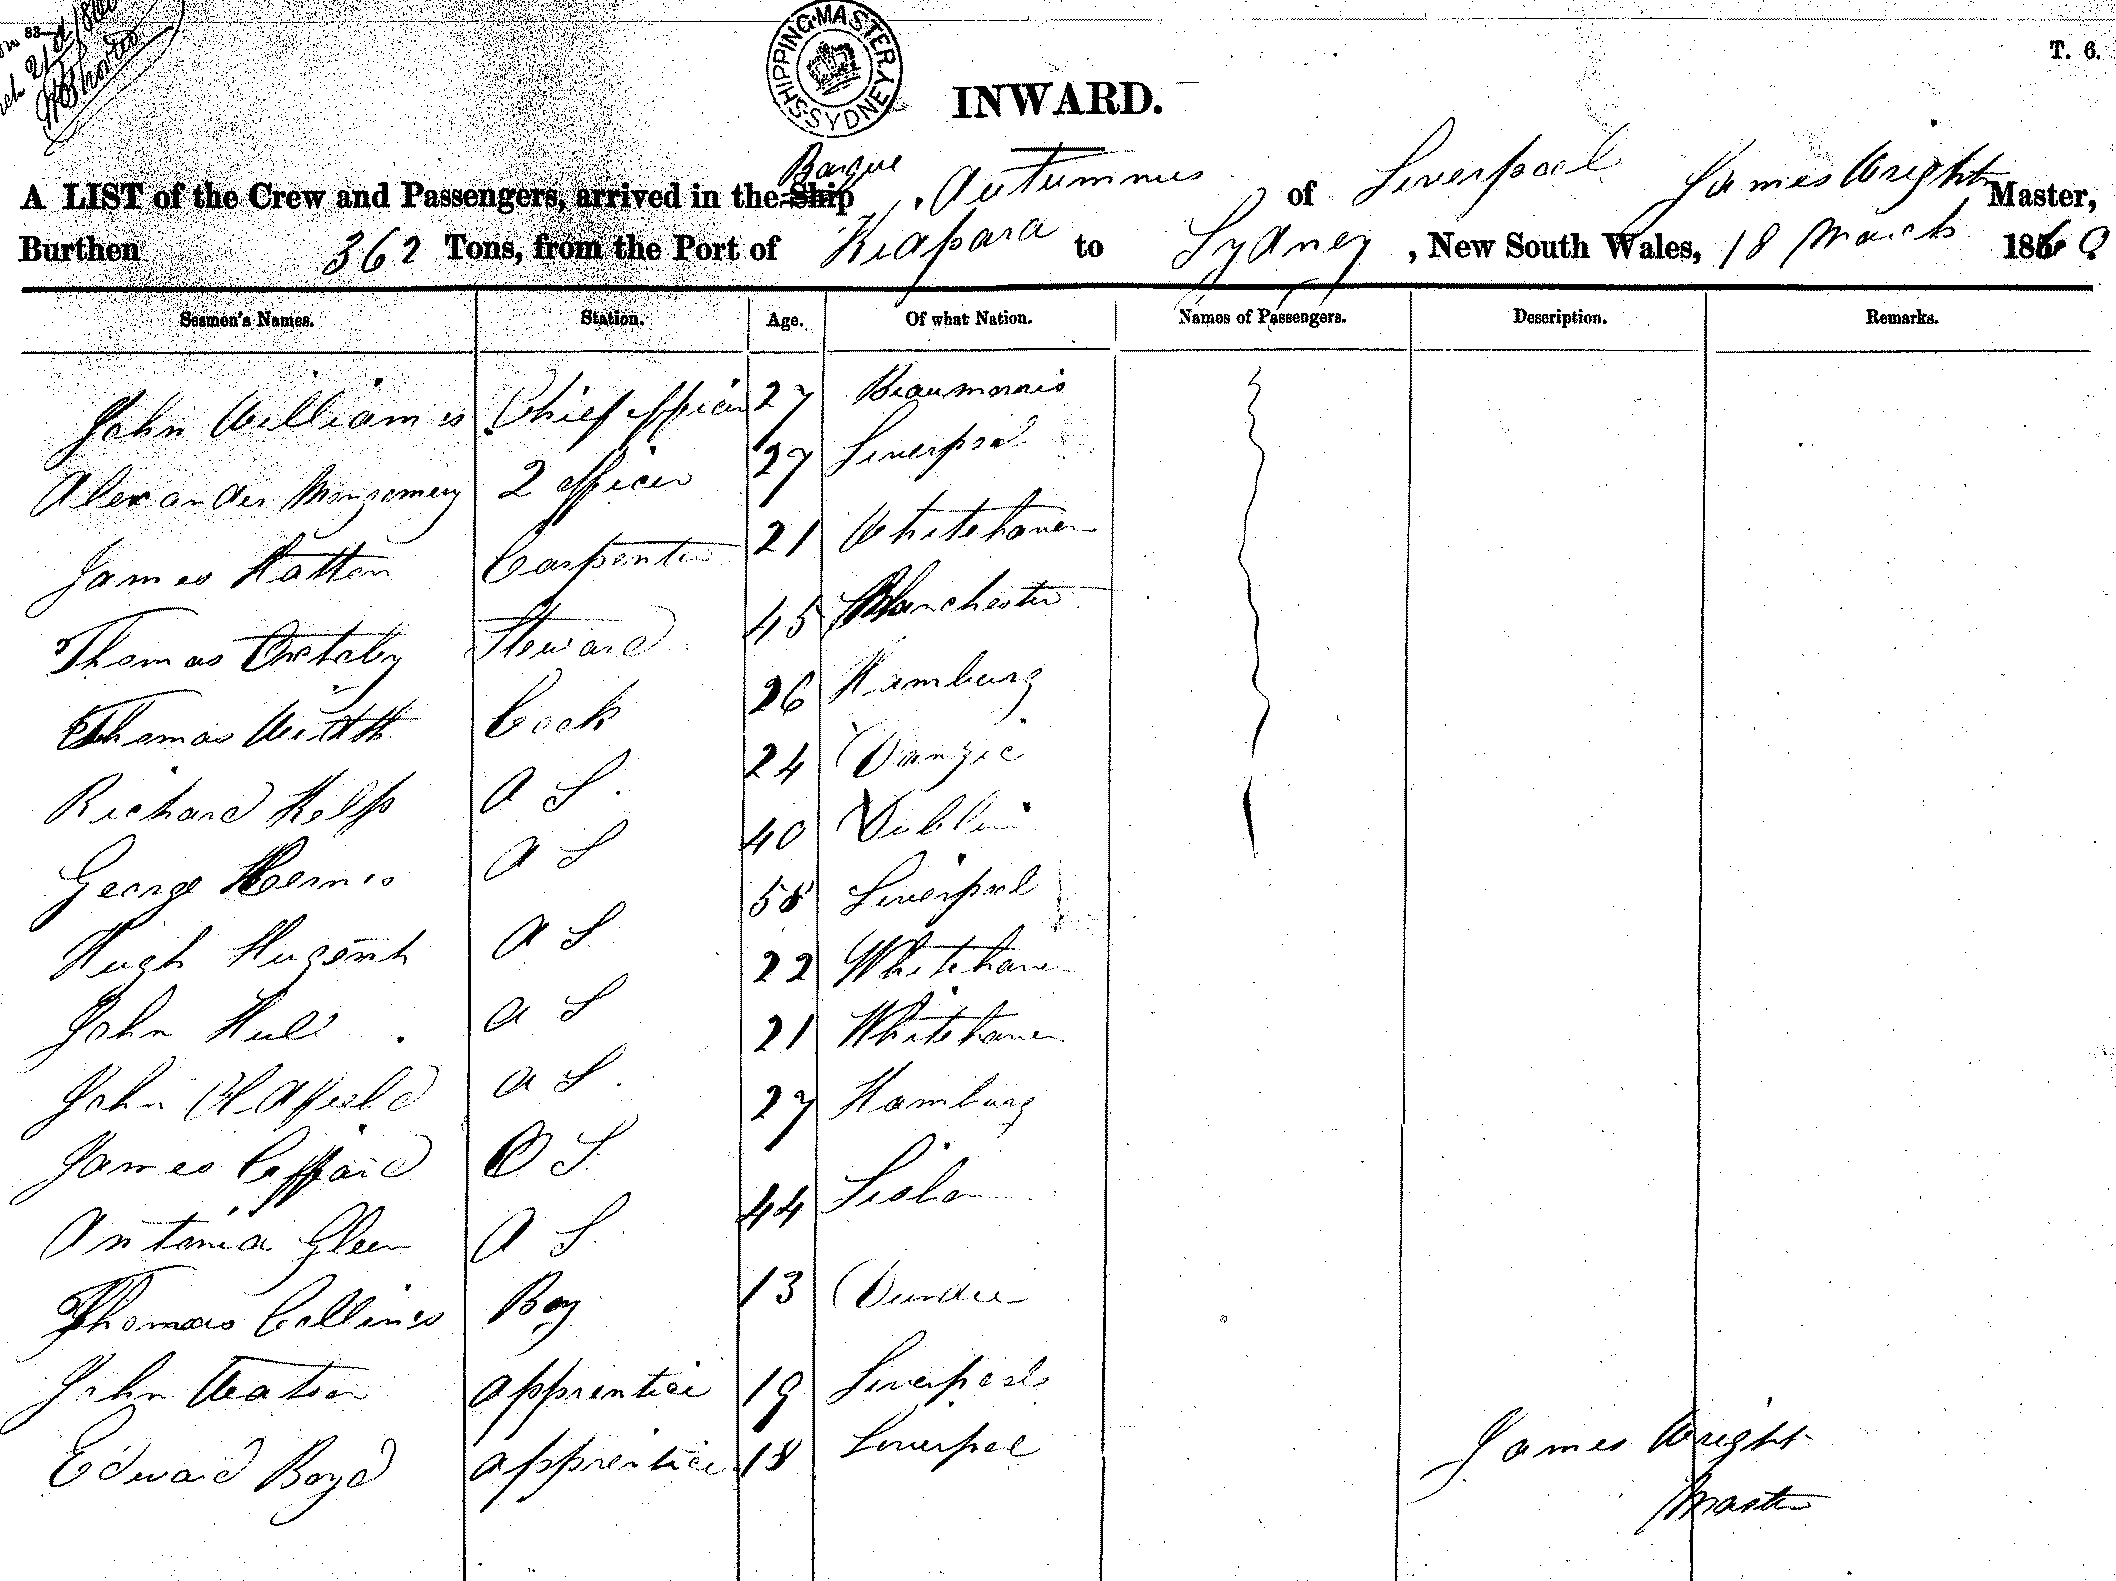 SHIPPING MASTER SYDNEY
T. 6.
INWARD.
Barque
A LIST of the Crew and Passengers, arrived in the Ship Autumnus of Liverpool James Wright Master,
Burthen 362 Tons, from the Port of Kiapara to Sydney, New South Wales, 18 March 1860
Seamen's Names. Station. Age. Of what Nation. Names of Passengers. Description. Remarks.
John Williams Chief officer 27 Beaumauris
Alexander Mongomery 2 officer 27 Liverpool
James Hatton Carpenter 21 Whitehaven
Thomas Steward 45 Manchester
Thomas Cook 26 Hamburg
Richard Kelly A S. 24 Danzic
George A S 40 Dublin
Hugh Nugent A S 58 Liverpool
John Hull A S 22 Whitehaven
John A S. 21 Whitehaven
James O S. 27 Hamburg
Antonia Gleen A S. 44 Lisbon
Thomas Collines Boy 13 Dundee
John Watson apprentice 19 Liverpool
Edward Boyd apprentice 18 Liverpol
James Wright
Master